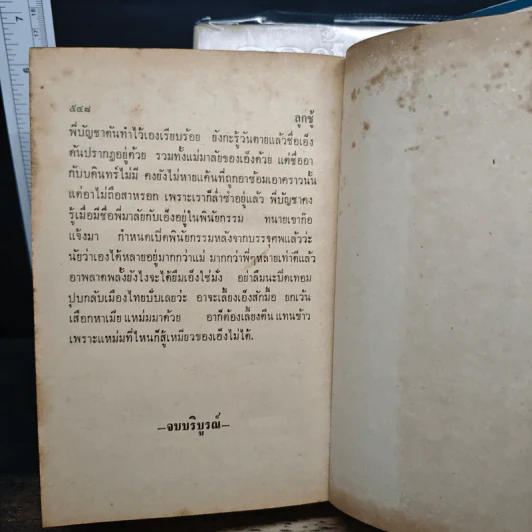 ๕๔๘
ลูกชู้
พี่บัญชาดันทำไว้เองเรียบร้อย ยังกะรู้วันตายแล้วชื่อเอ็ง
ดันปรากฏอยู่ด้วย รวมทั้งแม่มาลัยของเอ็งด้วย แต่ชื่ออา
กับบดินทร์ไม่มี คงยังไม่หายแค้นที่ถูกอาซ้อมเอาคราวนั้น
แต่อาไม่ถือสาหรอก เพราะเราก็ล่ำซำอยู่แล้ว พี่บัญชาคง
รู้เมื่อมีชื่อพี่มาลัยกับเอ็งอยู่ในพินัยกรรม ทนายเขาก็อ
แจ้งมา กำหนดเปิดพินัยกรรมหลังจากบรรจุศพแล้วว่ะ
นัยว่าเองได้หลายอยู่มากกว่าแม่ มากกว่าพี่ๆหลายเท่าดีแล้ว
อาพลาดพลั้งยังไงจะได้ยืมเอ็งใช่มั่ง อย่าลืมนะปิดเทอม
ปุบกลับเมืองไทยปั๊บเลยว่ะ อาจะเลี้ยงเอ็งสักมื้อ ยกเว้น
เสือกหาเมีย แหม่มมาด้วย อาก็ต้องเลี้ยงตีน แทนข้าว
เพราะแหม่มที่ไหนก็สู้เหมียวของเอ็งไม่ได้.
—จบบริบูรณ์—
7